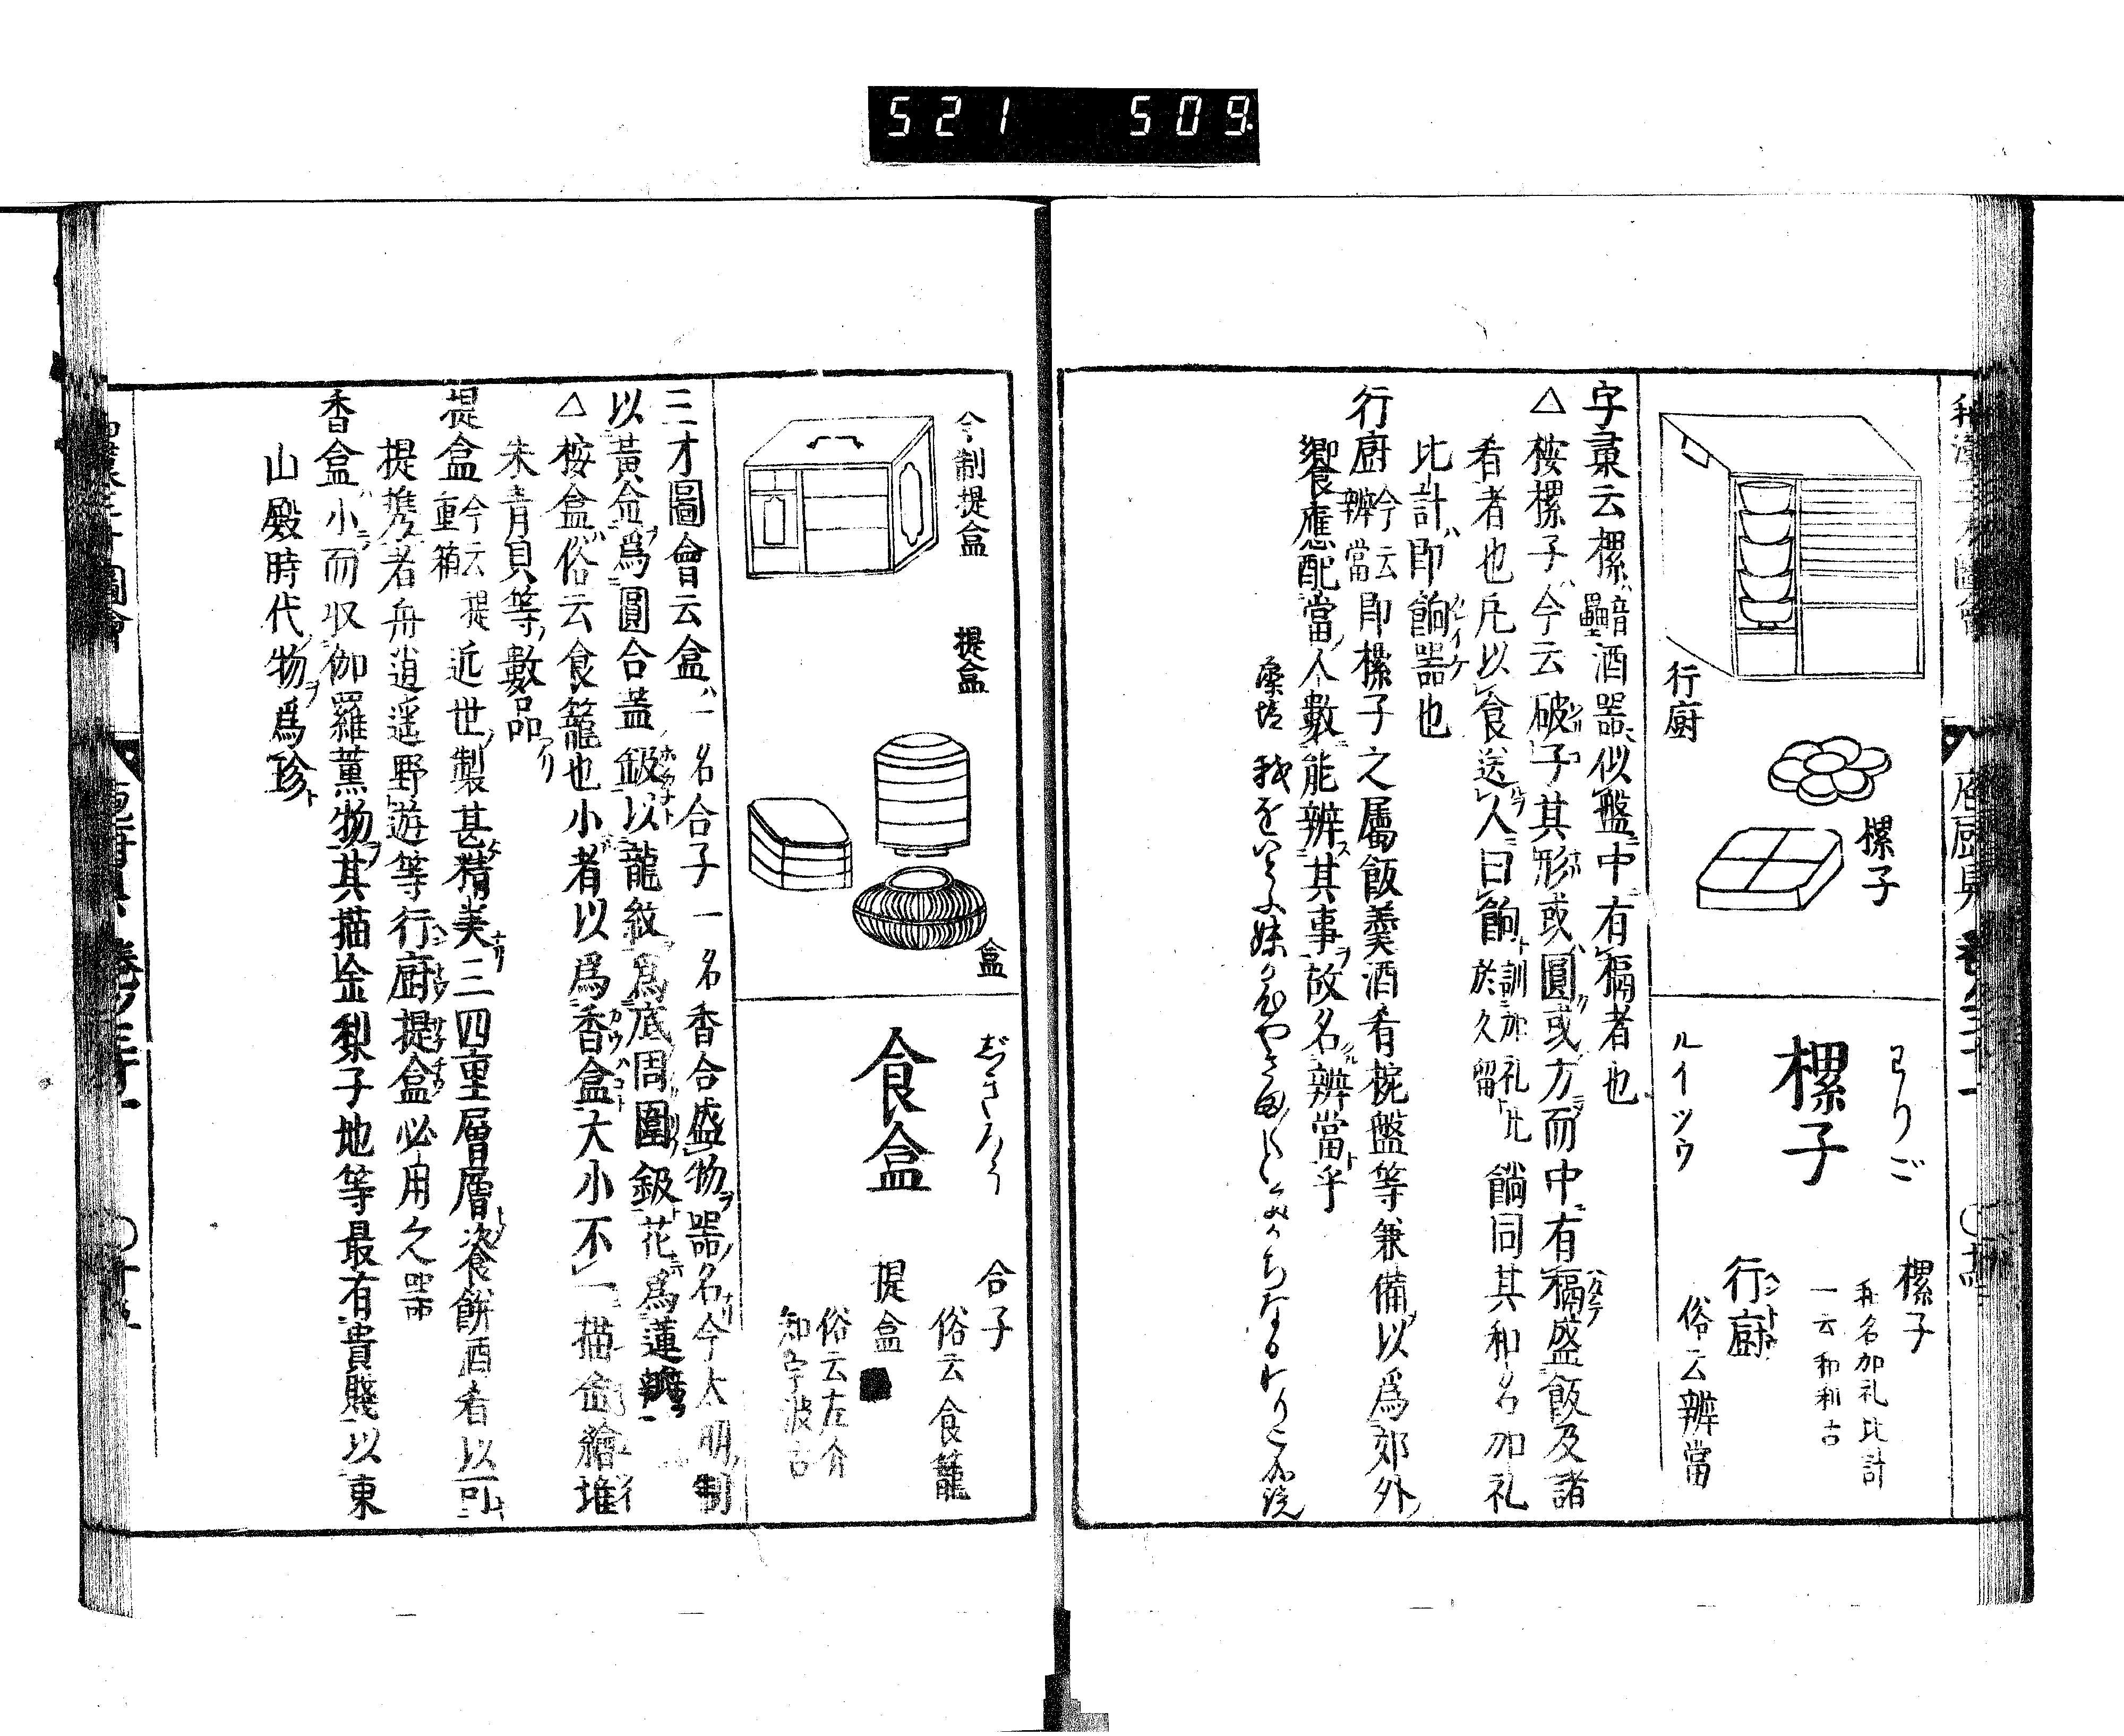 521 509.
庖厨具 卷之三十一
行廚
樏子
わりご
樏子
ルイツウ
樏子
和名加礼比計
一云和利古
行廚
俗云辨當
字彙云樏音壘酒器似盤中有槅者也
△桉樏子今云破子其形或圓或方而中有槅盛飯及諸
肴者也凡以食送人曰餉訓加礼比於久留餉同其和名加礼
比計即餉器也
行廚今云辨當即樏子之屬飯羹酒肴椀盤等兼備以爲郊外
饗應配當人數能辨其事故名辨當乎
今制提盒
提盒
盒
ぢきろう
食盒
合子
俗云食籠
提盒
俗云左介
知宇波古
三才圖會云盒一名合子一名香合盛物器名今大明制
以黃金爲圓合蓋鈒以龍紋爲底周圍鈒花爲蓮瓣
△桉盒俗云食籠也小者以爲香盒大小不一描金繪堆
朱青貝等數品
提盒今云提重箱近世製甚精美三四重層層瓷餅酒肴以可
提携者舟逍遥野遊等行廚提盒必用之器
香盒小而収伽羅薰物其描金梨子地等最有貴賤以東
山殿時代物爲珍